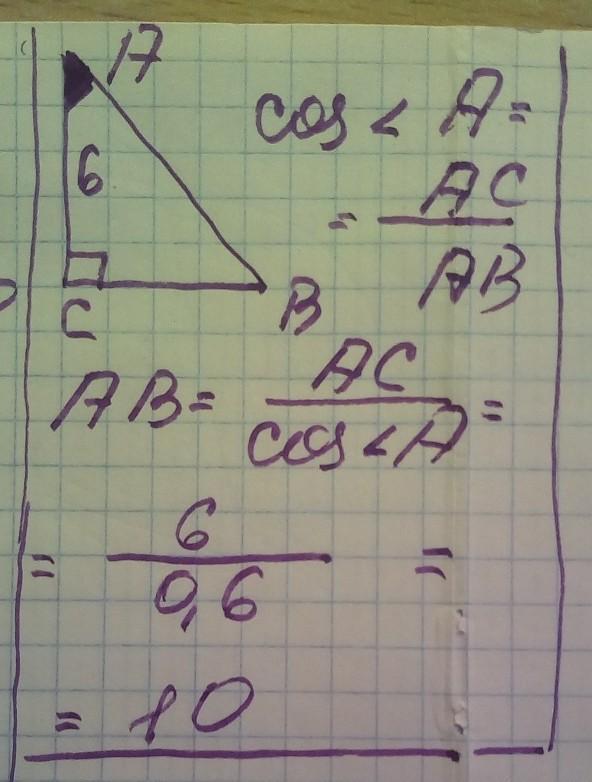 A
6
C
B
cos < A =
= AC / AB
AB = AC / cos < A =
= 6 / 0,6 =
= 10